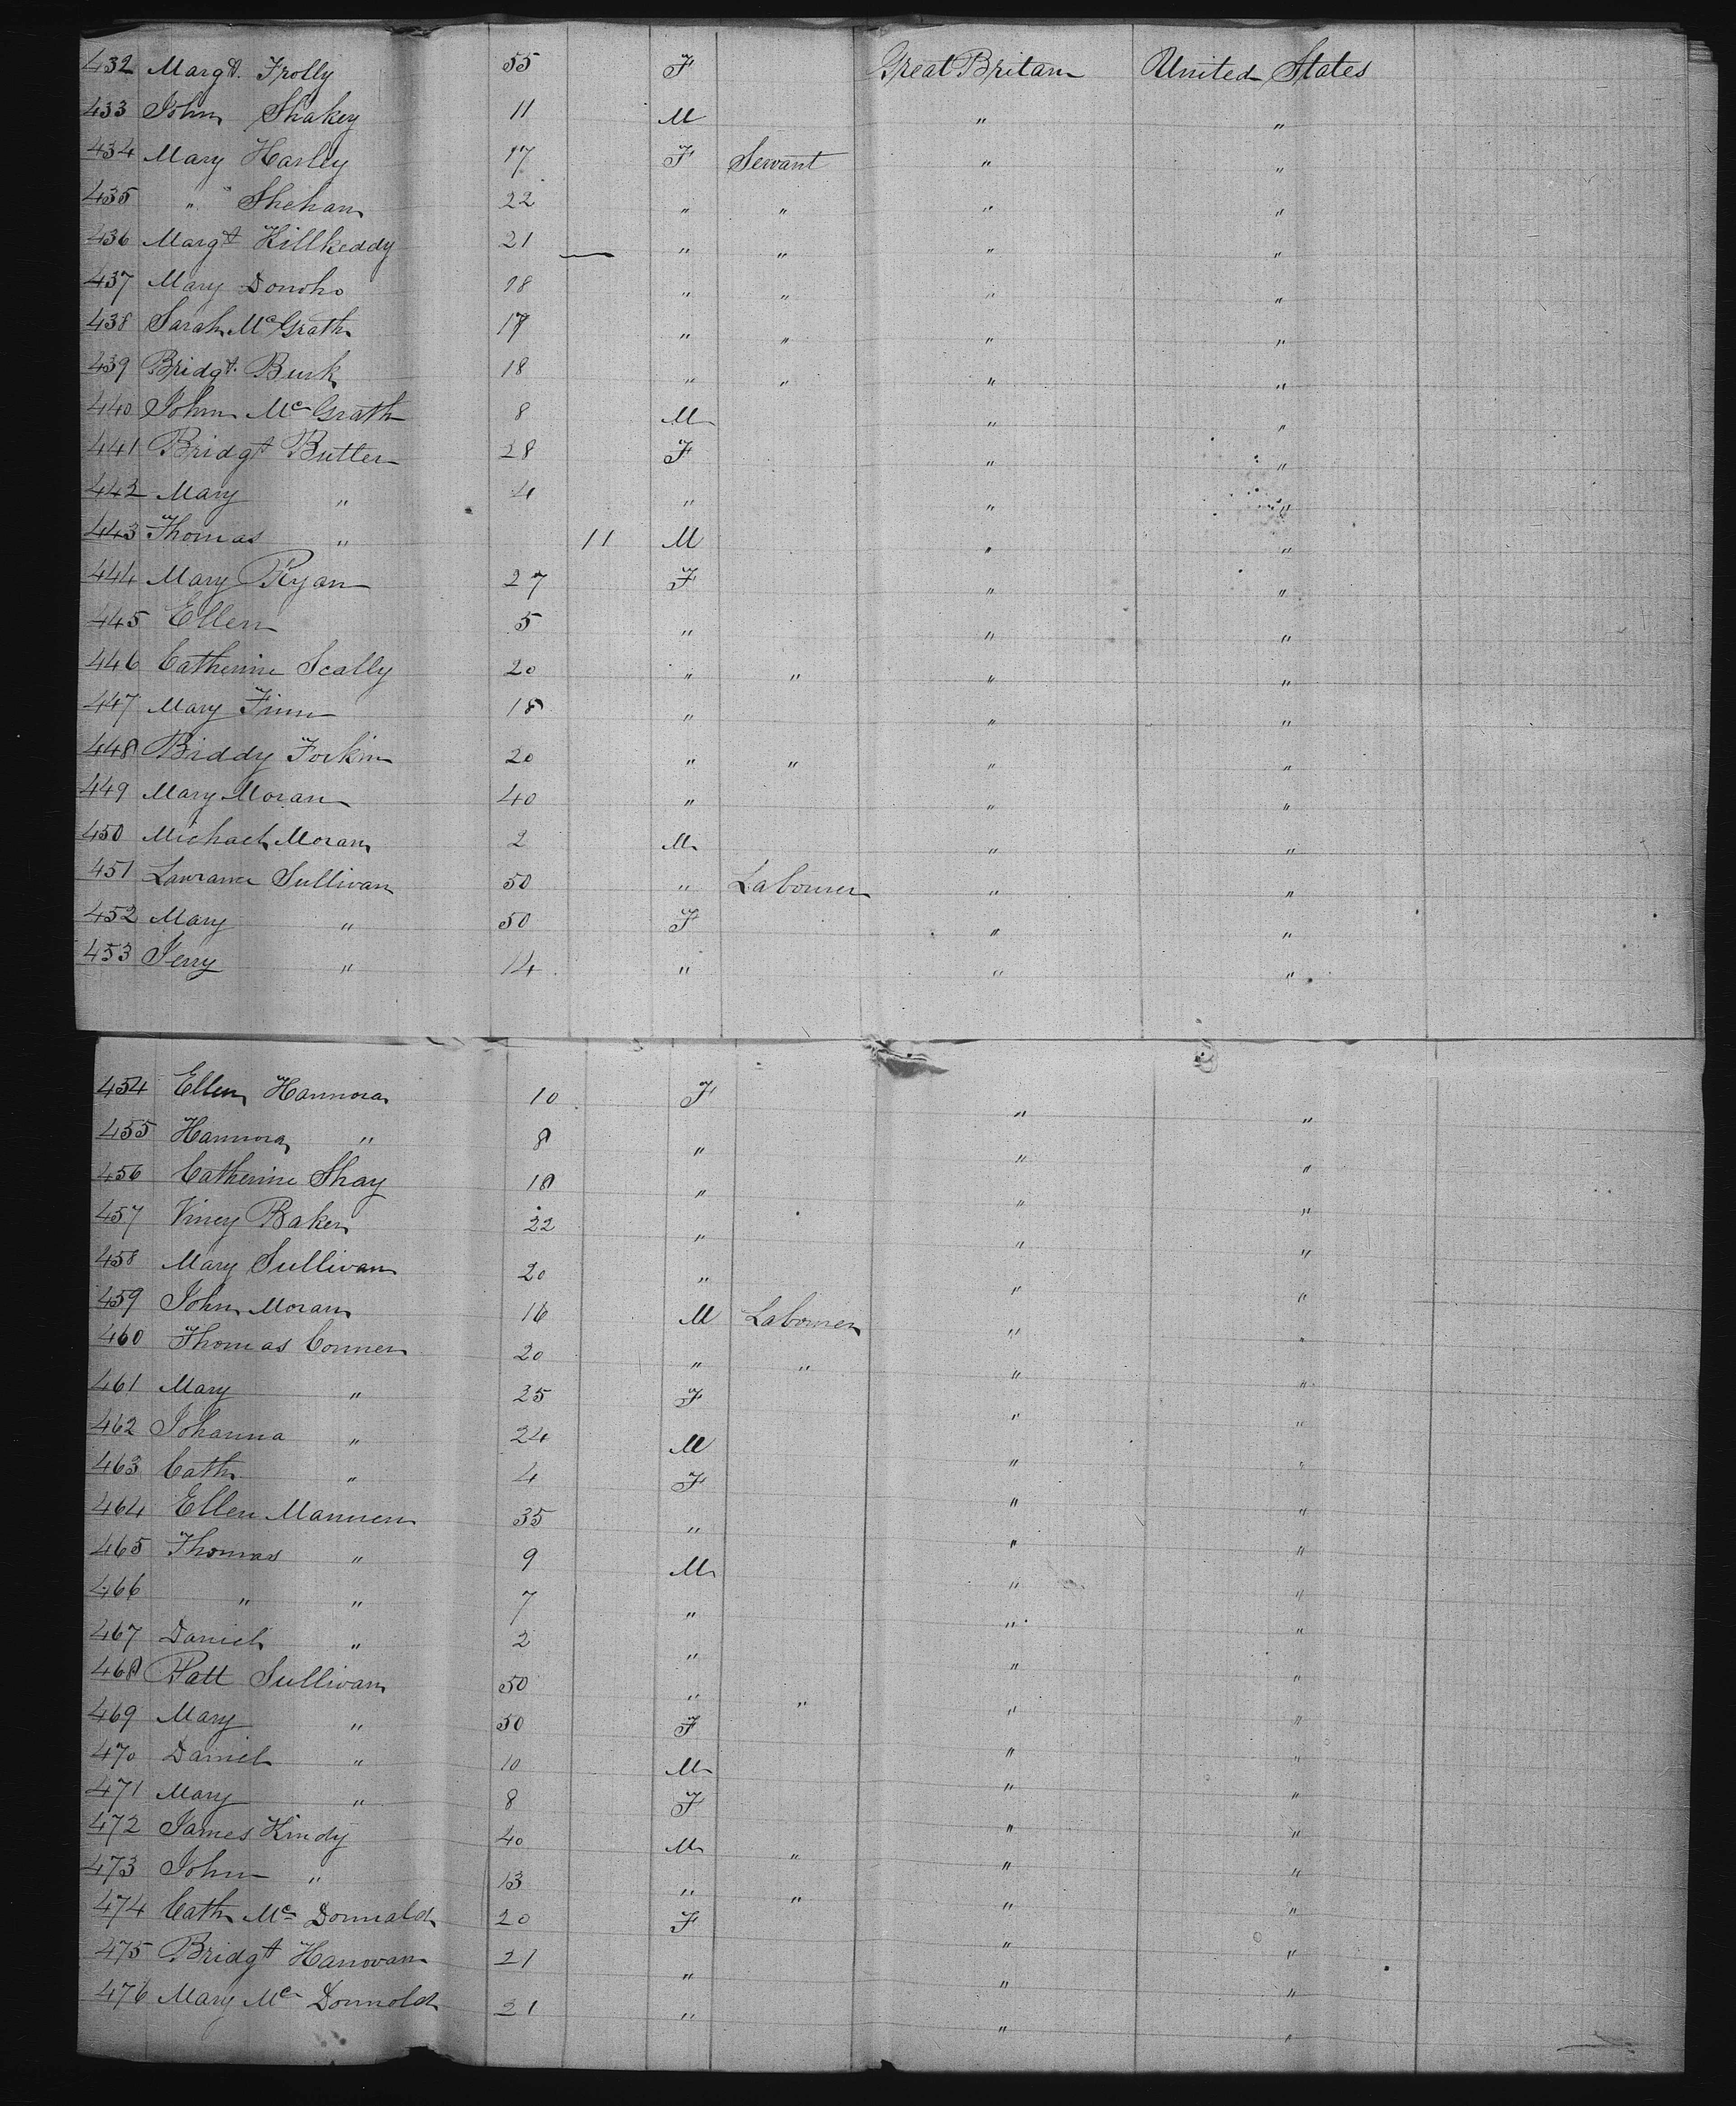 432 Margt. Frolly 55 F Great Britain United States
433 John Shakey 11 M " "
434 Mary Harley 17 F Servant " "
435 " Shehan 22 " " " "
436 Margt Killkeddy 21 " " " "
437 Mary Donoho 18 " " " "
438 Sarah McGrath 17 " " " "
439 Bridgt. Burk 18 " " " "
440 John McGrath 8 M " "
441 Bridgt Butler 28 F " "
442 Mary " 4 " " "
443 Thomas " 11 M " "
444 Mary Ryan 27 F " "
445 Ellen 5 " " "
446 Catherine Scally 20 " " " "
447 Mary Finn 18 " " "
448 Biddy Forkin 20 " " " "
449 Mary Moran 40 " " "
450 Michael Moran 2 M " "
451 Lawrance Sullivan 50 " Labourer " "
452 Mary " 50 F " "
453 Jerry " 14 " " "
454 Ellen Hannora 10 F " "
455 Hannora " 8 " " "
456 Catherine Shay 18 " " "
457 Viney Baker 22 " " "
458 Mary Sullivan 20 " " "
459 John Moran 16 M Labourer " "
460 Thomas Conner 20 " " " "
461 Mary " 25 F " "
462 Johanna " 24 M " "
463 Cath " 4 F " "
464 Ellen Mannen 35 " " "
465 Thomas " 9 M " "
466 " " 7 " " "
467 Daniel " 2 " " "
468 Patt Sullivan 50 " " " "
469 Mary " 50 F " "
470 Daniel " 10 M " "
471 Mary " 8 F " "
472 James Kindy 40 M " " "
473 John " 13 " " " "
474 Cath Mc Donnald 20 F " "
475 Bridgt Hanovan 21 " " "
476 Mary Mc Donnold 21 " " "